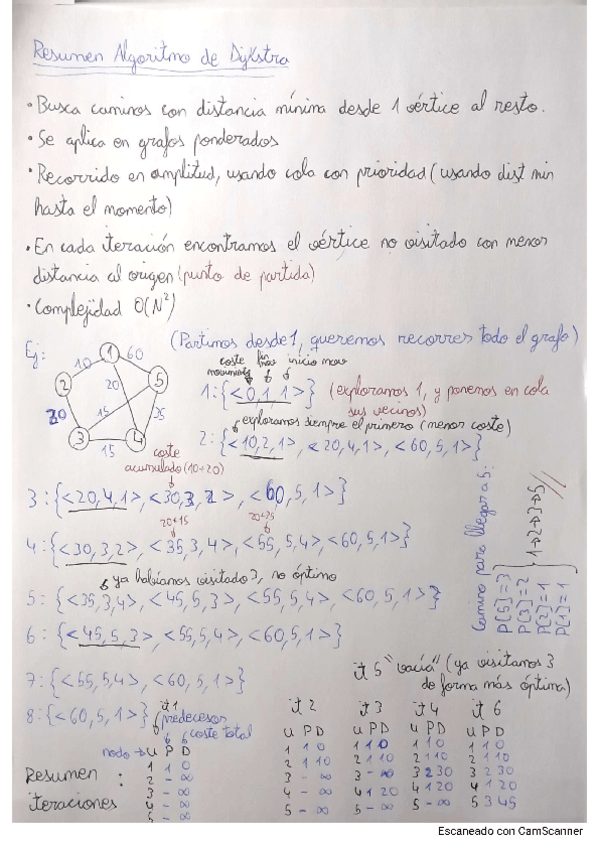 Resumen Algoritmo de Dijkstra
• Busca caminos con distancia mínima desde 1 vértice al resto.
• Se aplica en grafos ponderados
• Recorrido en amplitud, usando cola con prioridad (usando dist min
hasta el momento)
• En cada iteración encontramos el vértice no visitado con menor
distancia al origen (punto de partida)
• Complejidad O(N²)
Ej:
(Partimos desde 1, queremos recorrer todo el grafo)
1 2 3 4 5
10 60 20 20 15 35 15
coste movimiento
fin mov
inicio mov
1: {<0,1,1>} (exploramos 1, y ponemos en cola
sus vecinos)
exploramos siempre el primero (menor coste)
2: {<10,2,1>, <20,4,1>, <60,5,1>}
coste
acumulado (10+20)
3: {<20,4,1>, <30,3,2>, <60,5,1>}
20+15 20+35
4: {<30,3,2>, <35,3,4>, <55,5,4>, <60,5,1>}
ya habíamos visitado 3, no óptimo
5: {<35,3,4>, <45,5,3>, <55,5,4>, <60,5,1>}
6: {<45,5,3>, <55,5,4>, <60,5,1>}
7: {<55,5,4>, <60,5,1>}
8: {<60,5,1>}
Camino para llegar a 5:
P[5]=3
P[3]=2
P[2]=1
P[1]=1
1→2→3→5
it 5 "vacía" (ya visitamos 3
de forma más óptima)
Resumen iteraciones:
it 1
predecesor
coste total
nodo → U P D
1 1 0
2 - ∞
3 - ∞
4 - ∞
5 - ∞
it 2
U P D
1 1 0
2 1 10
3 - ∞
4 - ∞
5 - ∞
it 3
U P D
1 1 0
2 1 10
3 - ∞
4 1 20
5 - ∞
it 4
U P D
1 1 0
2 1 10
3 2 30
4 1 20
5 - ∞
it 6
U P D
1 1 0
2 1 10
3 2 30
4 1 20
5 3 45
Escaneado con CamScanner